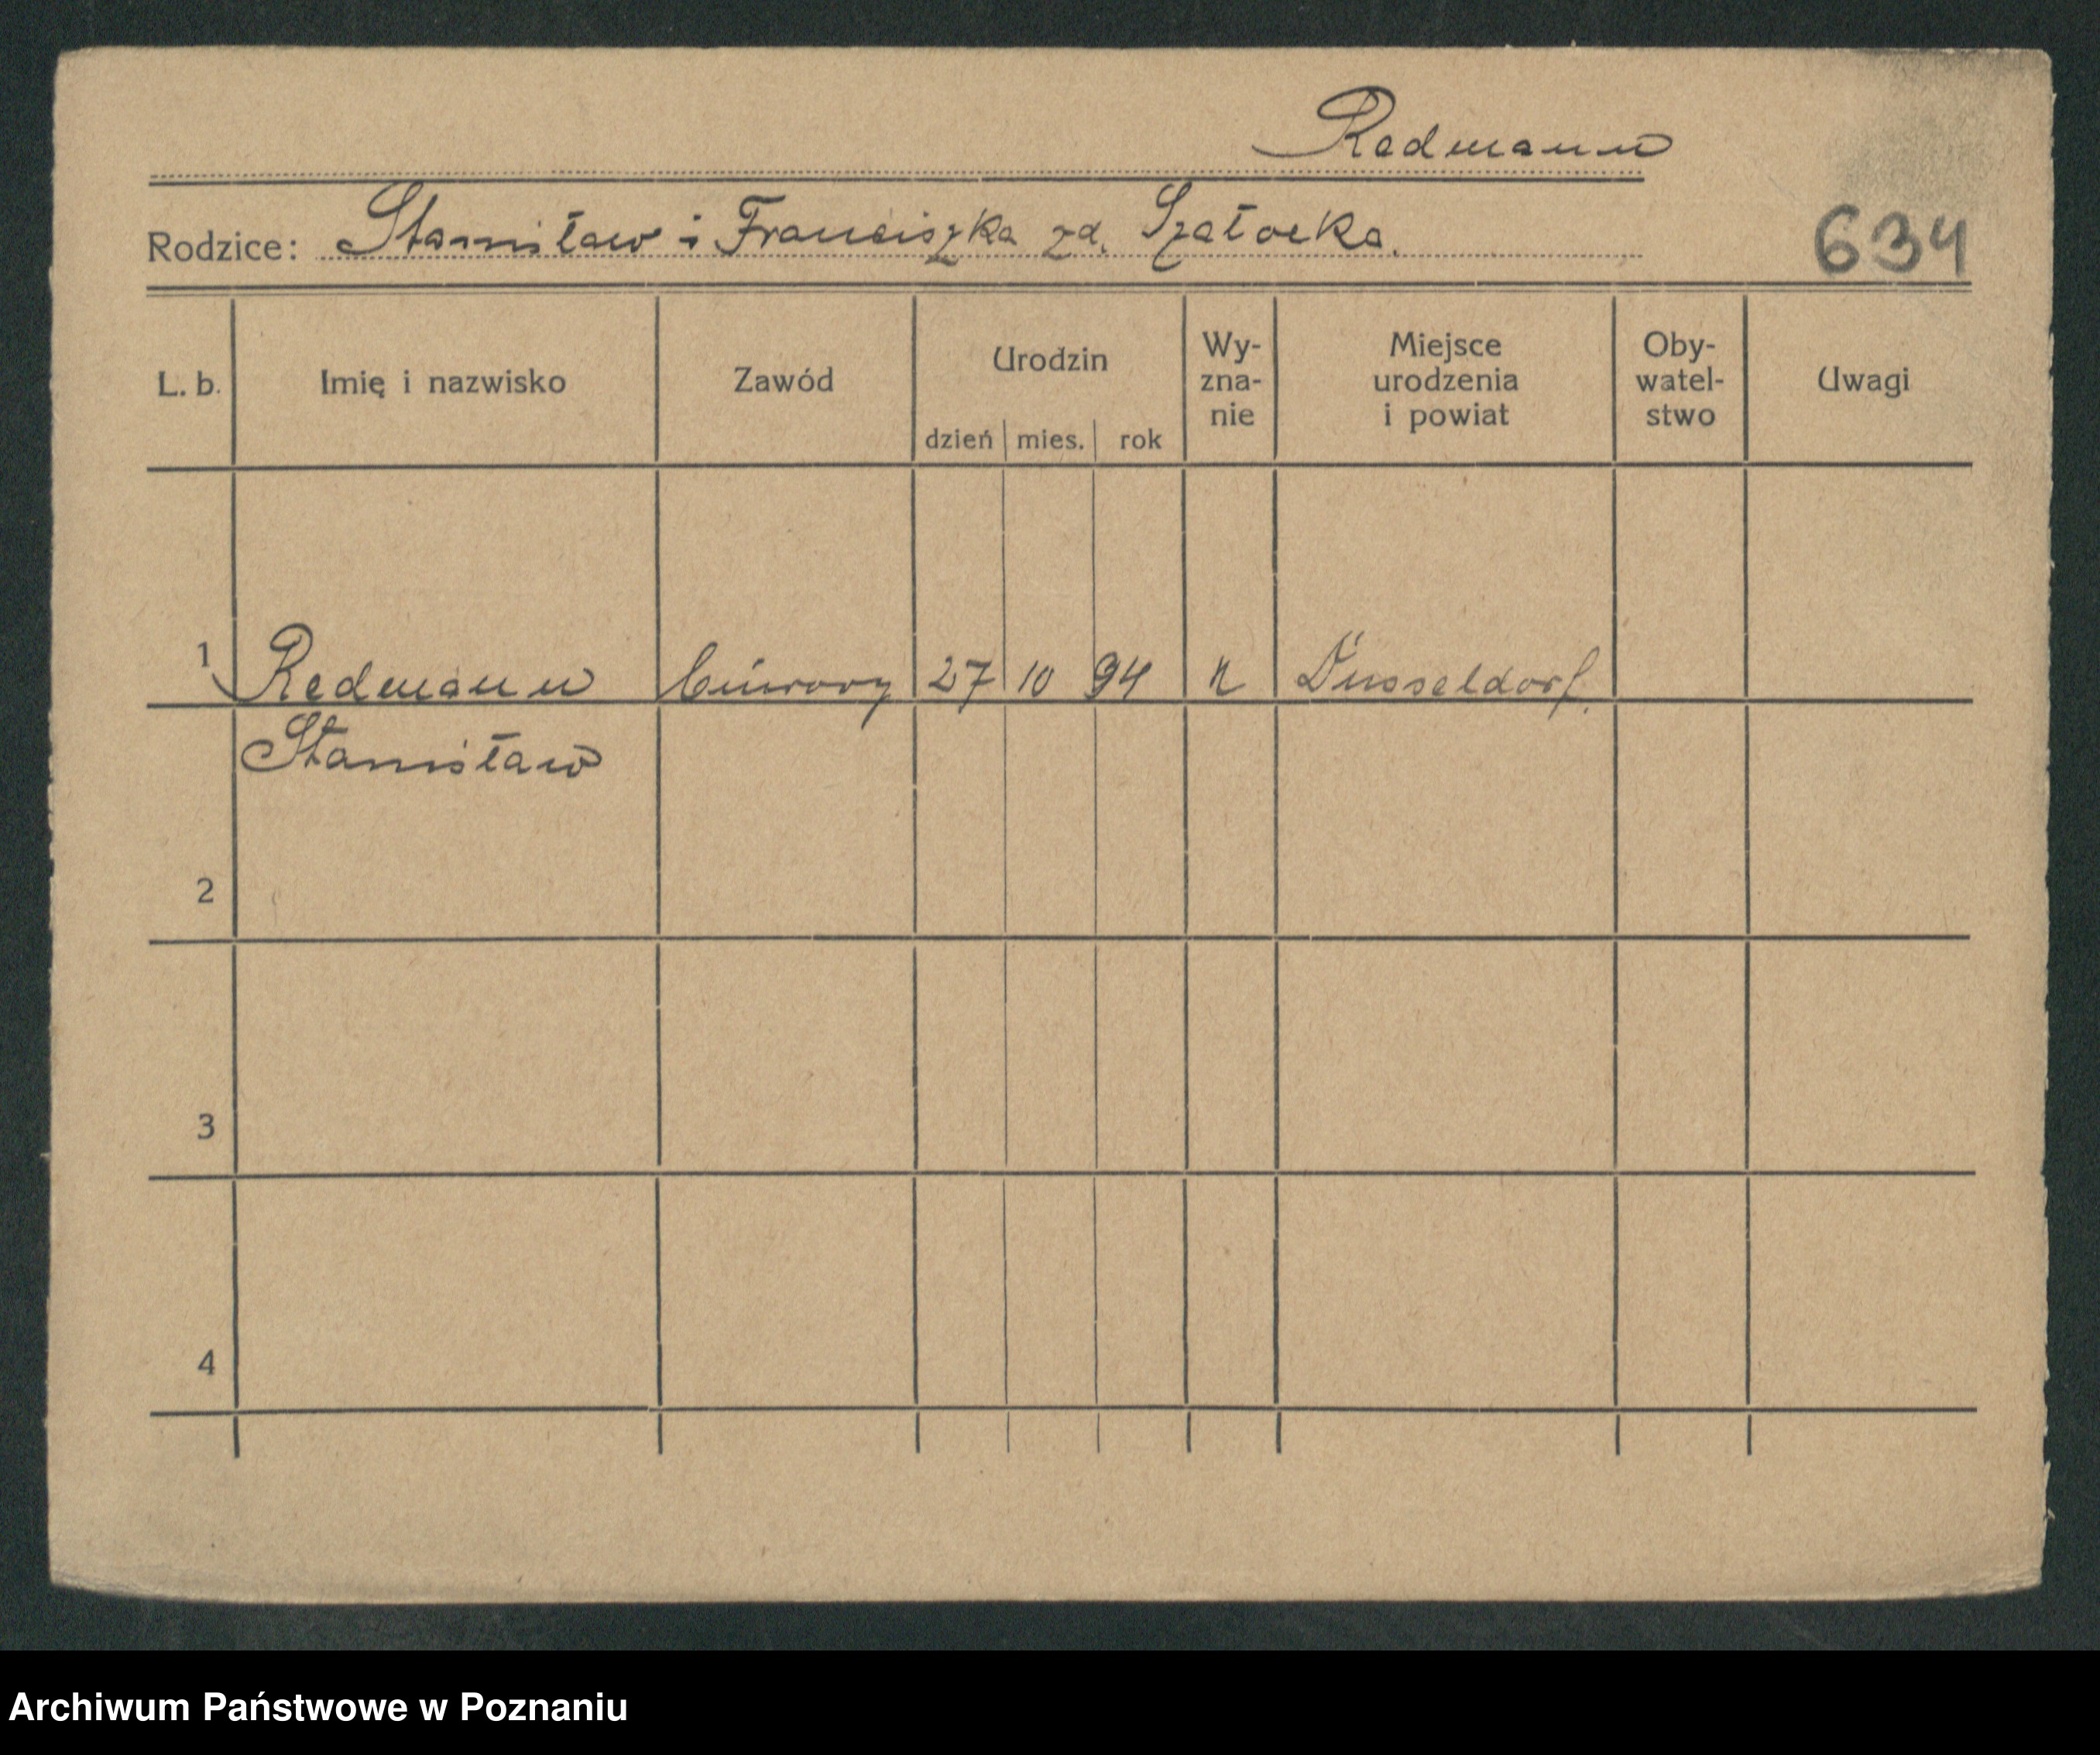 Redmann
Rodzice: Stanisław i Franciszka zd. Szałocka.
634
L. b. Imię i nazwisko Zawód Urodzin dzień mies. rok Wy-zna-nie Miejsce urodzenia i powiat Oby-watel-stwo Uwagi
1 Redmann biurowy 27 10 94 k Düsseldorf.
Stanisław
2
3
4
Archiwum Państwowe w Poznaniu